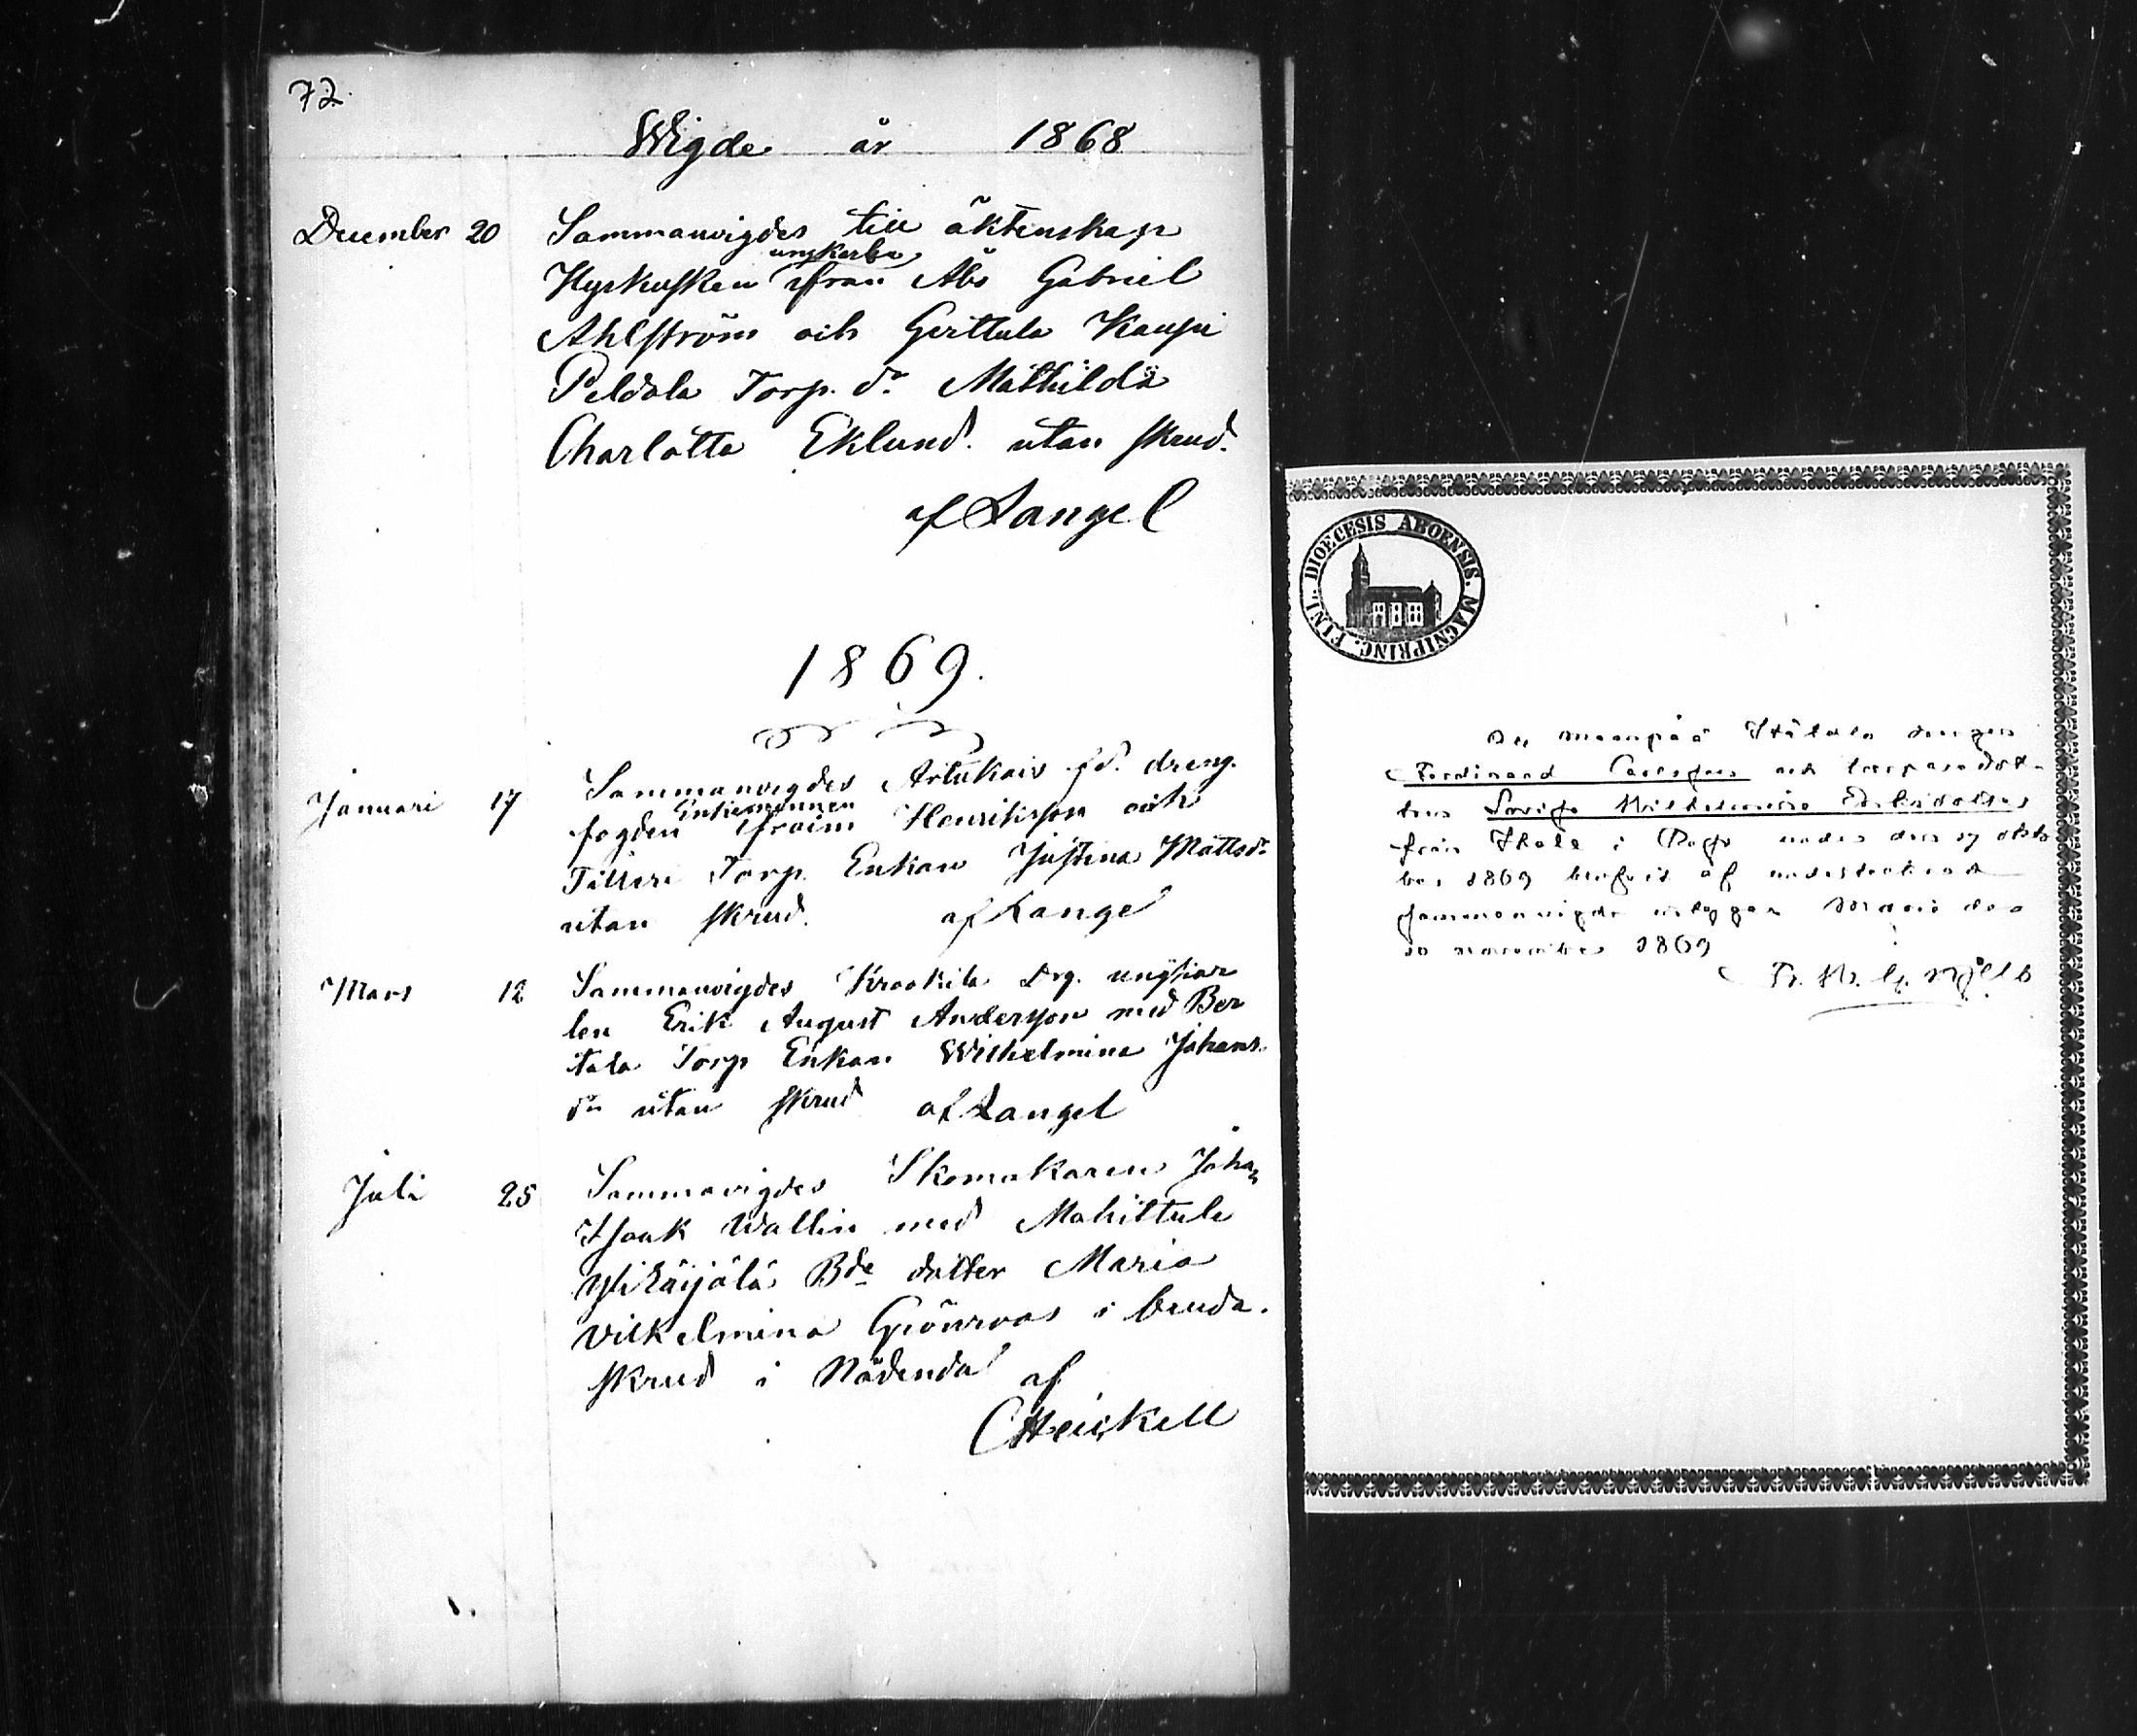 72.
Wigde år 1868
December 20 Sammanvigdes till äktenskap
ungkarln
Hyrkusken ifrån Åbo Gabriel
Ahlström och Gerttula Kaupi
Peldola Torp. dr Mathilda
Charlotta Eklund. utan skrud.
af Langel
1869.
Januari 17 Sammanvigdes Artukais fd. dreng.
Enkemannen
fogden Efraim Henriksson och
Torp. Enkan Justina Mattsdr
utan skrud. af Langel
Mars 12 Sammanvigdes Krookila Drg. ungkar
len Erik August Andersson med Ber
tala Torp Enkan Wilhelmina Johans
dr utan skrud af Langel
Juli 25 Sammavigdes Skomakaren Johan
Isaak Wallin med Mahittula
Yli Äijälä Bde dotter Maria
Vilhelmina Grönroos i bruda.
skrud i Nådendal af
CHeickell
DIOECESIS ABOENSIS. MAGNI PRINC. FINL.
Att drengen
Ferdinand och torparedot-
tren Lovisa Wilhelmina
från i Pargas den 17 okto
ber 1869 blifvit af undertecknad
sammanvigde den
10 november 1869